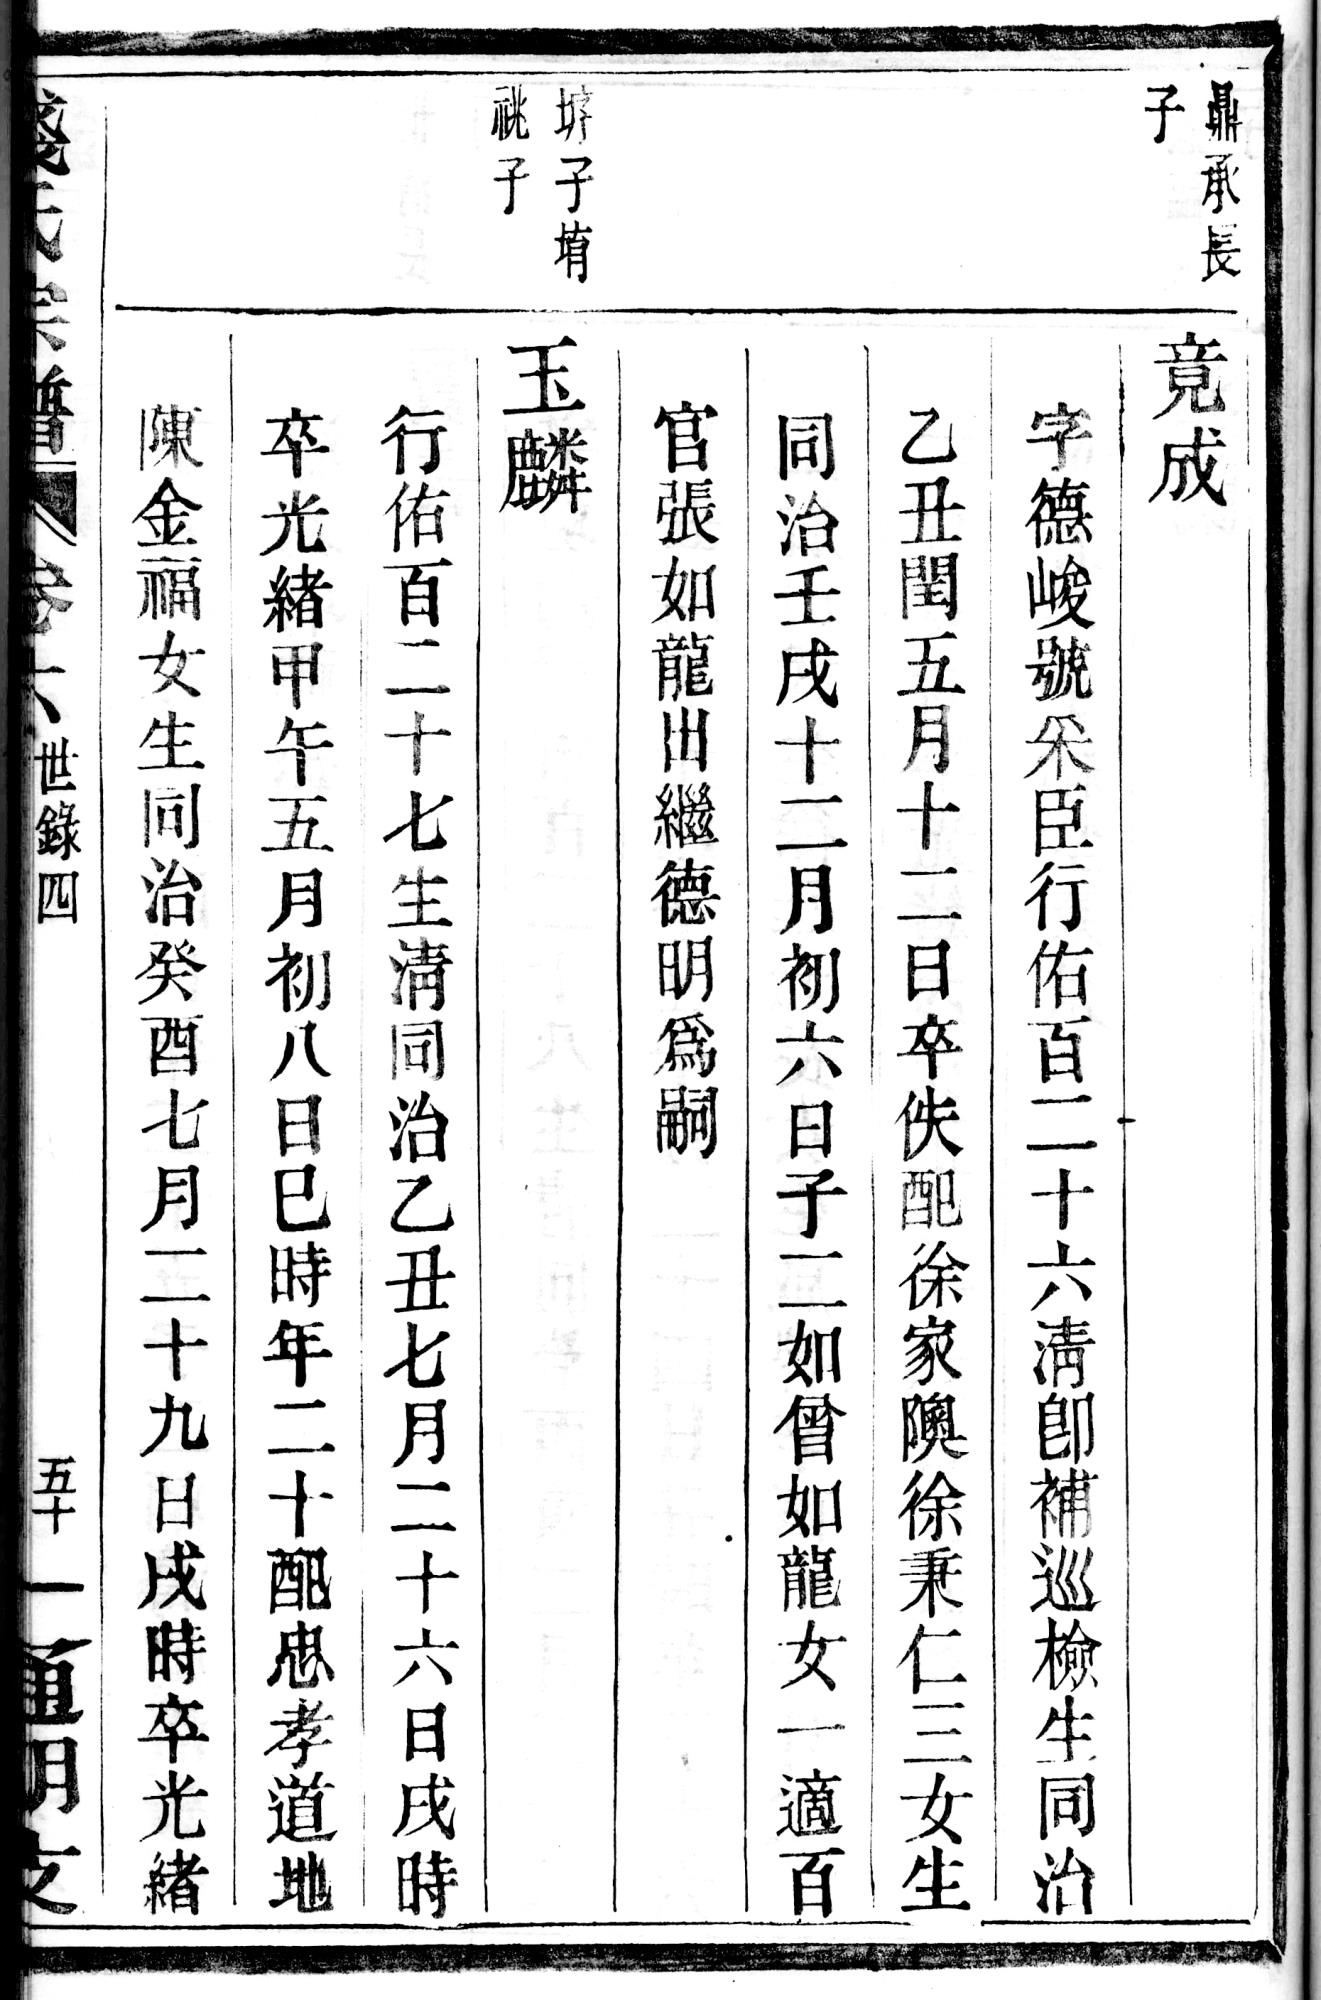 鼎承長
子
竟成
字德峻號采臣行佑百二十六清卽補巡檢生同治
乙丑閏五月十二日卒佚配徐家隩徐秉仁三女生
同治壬戌十二月初六日子二如曾如龍女一適百
官張如龍出繼德明爲嗣
㘾子堉
祧子
玉麟
行佑百二十七生清同治乙丑七月二十六日戌時
卒光緒甲午五月初八日巳時年二十配忠孝道地
陳金福女生同治癸酉七月二十九日戌時卒光緒
錢氏宗譜 卷六 世錄四 五十一 通明支